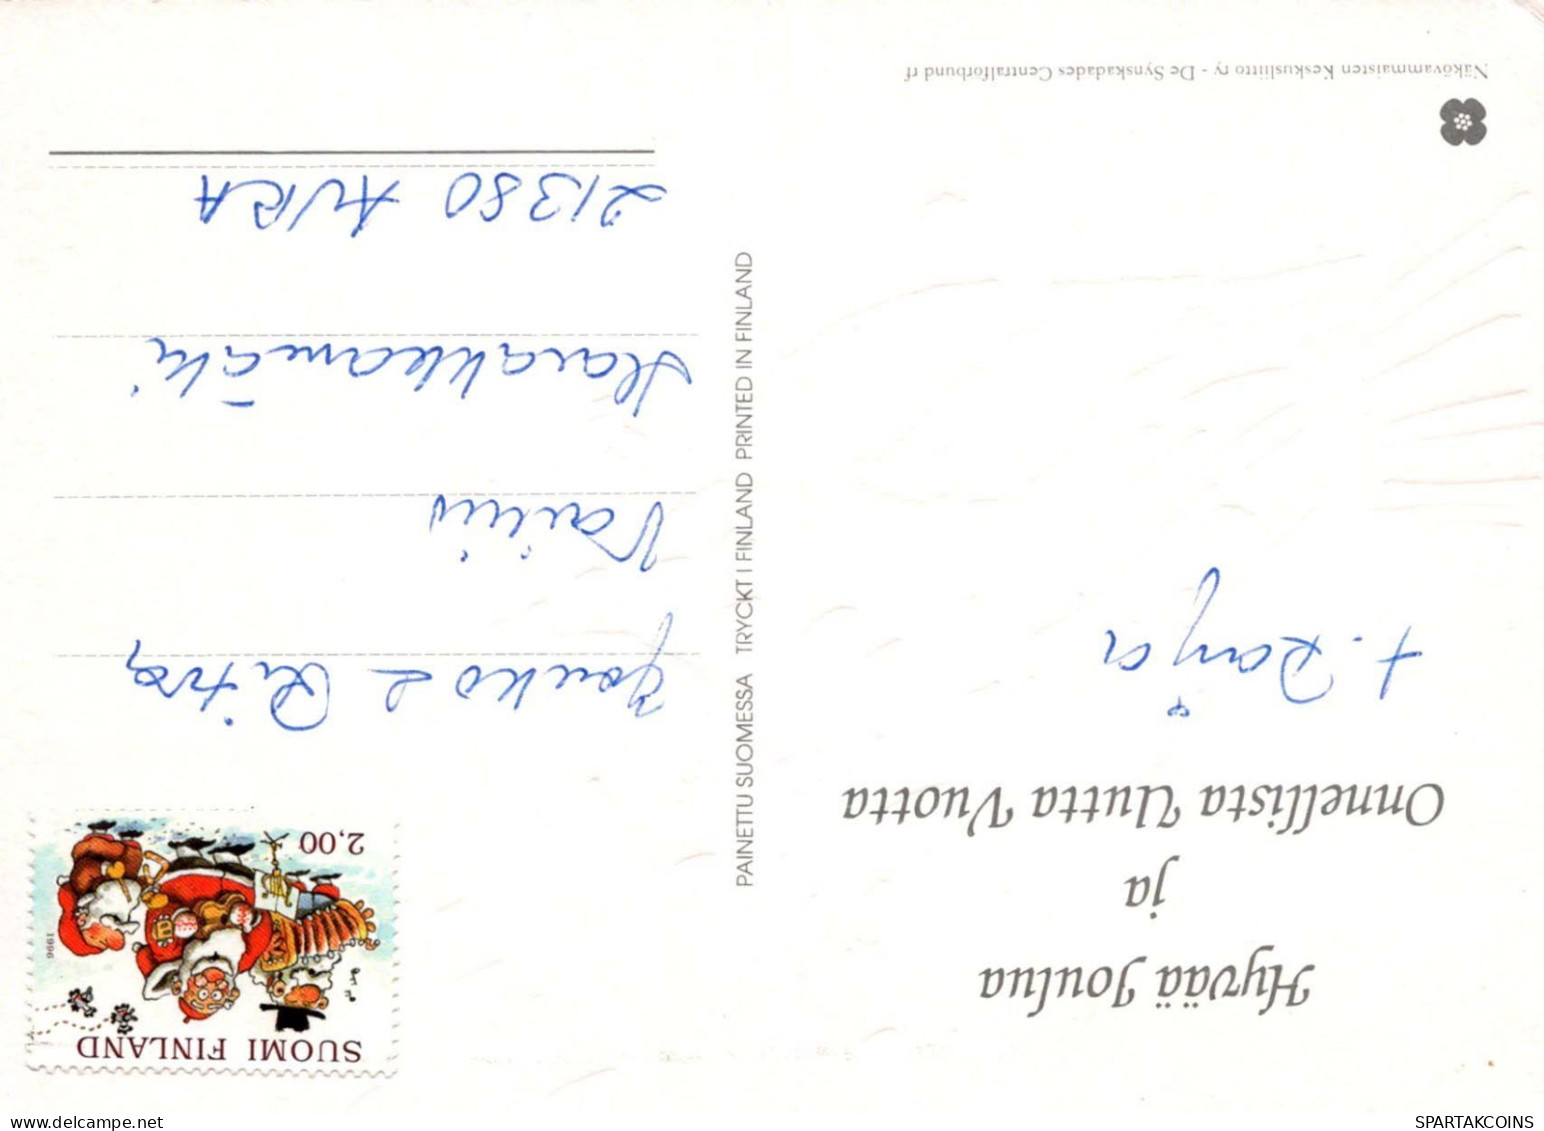 Hyvää Joulua
ja
Onnellista Uutta Vuotta
t. Ranja
Näkövammaisten Keskusliitto ry - De Synskadades Centralförbund rf
PAINETTU SUOMESSA TRYCKT I FINLAND PRINTED IN FINLAND
SUOMI FINLAND
1996
2,00
Jouko &
Vainio
Harakkamäki
21380 AURA
SPARTAKCOINS